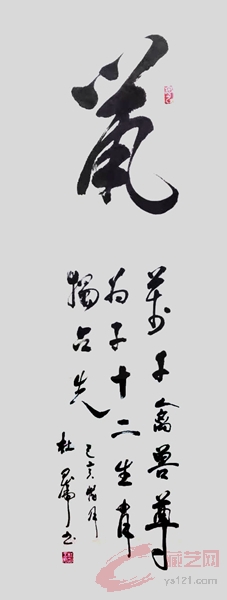 鼠
萬千禽兽尊
为子十二生肖
獨占先
己亥
杜
书
藏艺网
ys121.com